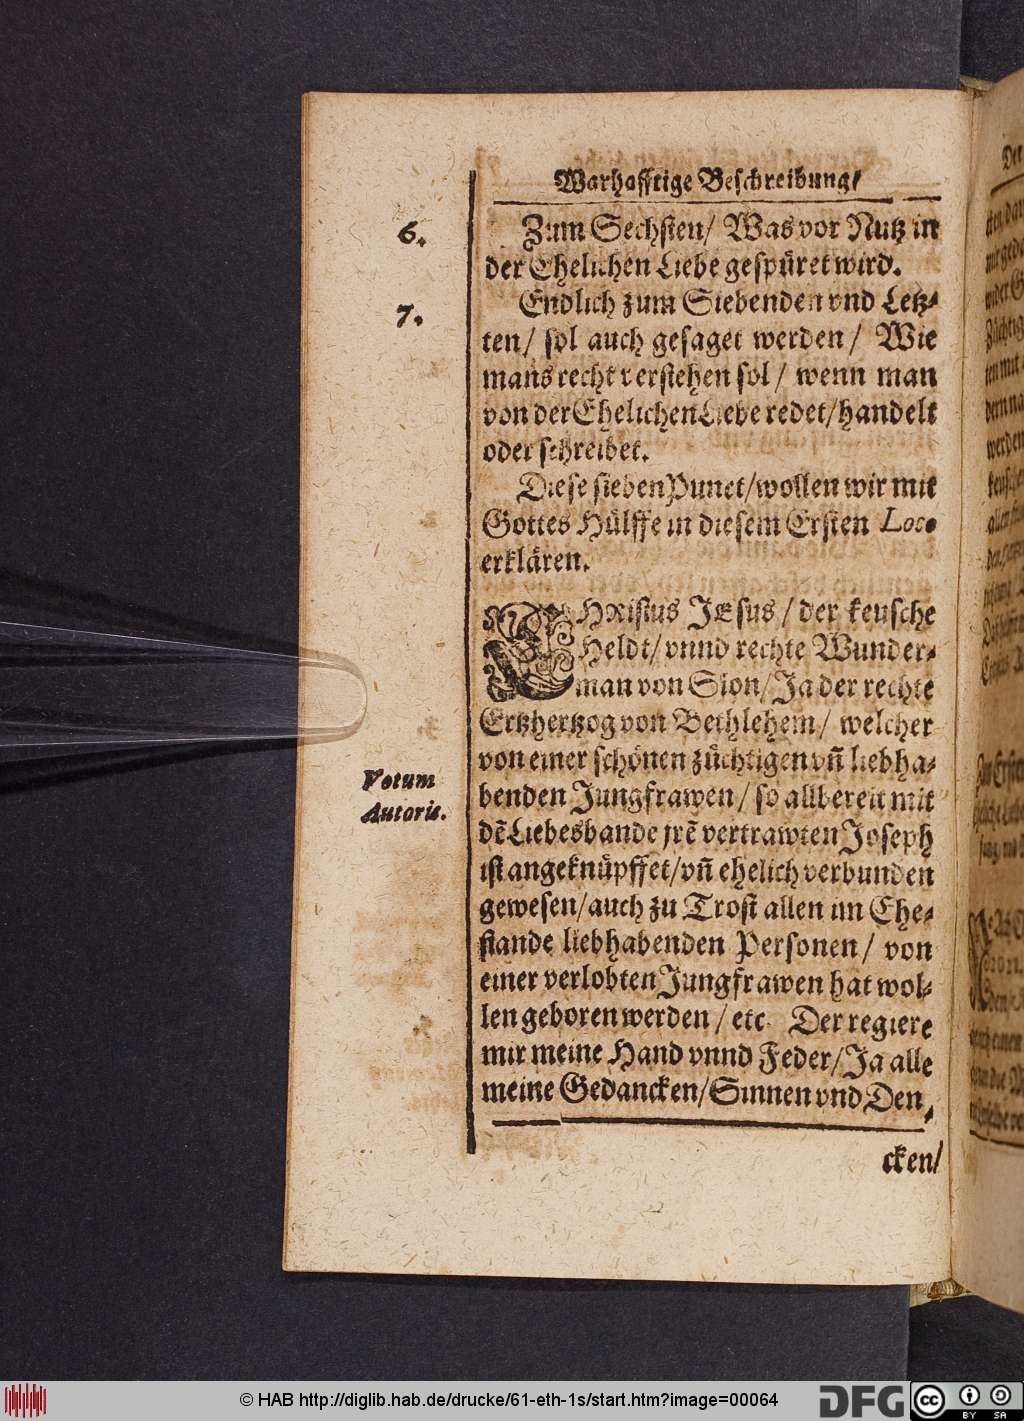 Warhafftige Beschreibung/
6.
Zum Sechsten/ Was vor Nutz in
der Ehelichen Liebe gespüret wird.
7.
Endlich zum Siebenden vnd Letz-
ten/ sol auch gesaget werden/ Wie
mans recht verstehen sol/ wenn man
von der Ehelichen Liebe redet/ handelt
oder schreibet.
Diese sieben Punct/ wollen wir mit
Gottes Hülffe in diesem Ersten Loco
erklären.
CHRistus JEsus/ der keusche
Heldt/ vnnd rechte Wunder-
man von Sion/ Ja der rechte
Ertzhertzog von Bethlehem/ welcher
von einer schönen züchtigen vñ liebha-
Votum
Autoris.
benden Jungfrawen/ so allbereit mit
dẽ Liebesbande jrẽ vertrawten Joseph
ist angeknüpffet/ vñ ehelich verbunden
gewesen/ auch zu Trost allen im Ehe-
stande liebhabenden Personen/ von
einer verlobten Jungfrawen hat wol-
len geboren werden/ etc. Der regiere
mir meine Hand vnnd Feder/ Ja alle
meine Gedancken/ Sinnen vnd Den-
cken/
© HAB http://diglib.hab.de/drucke/61-eth-1s/start.htm?image=00064
DFG
cc BY SA